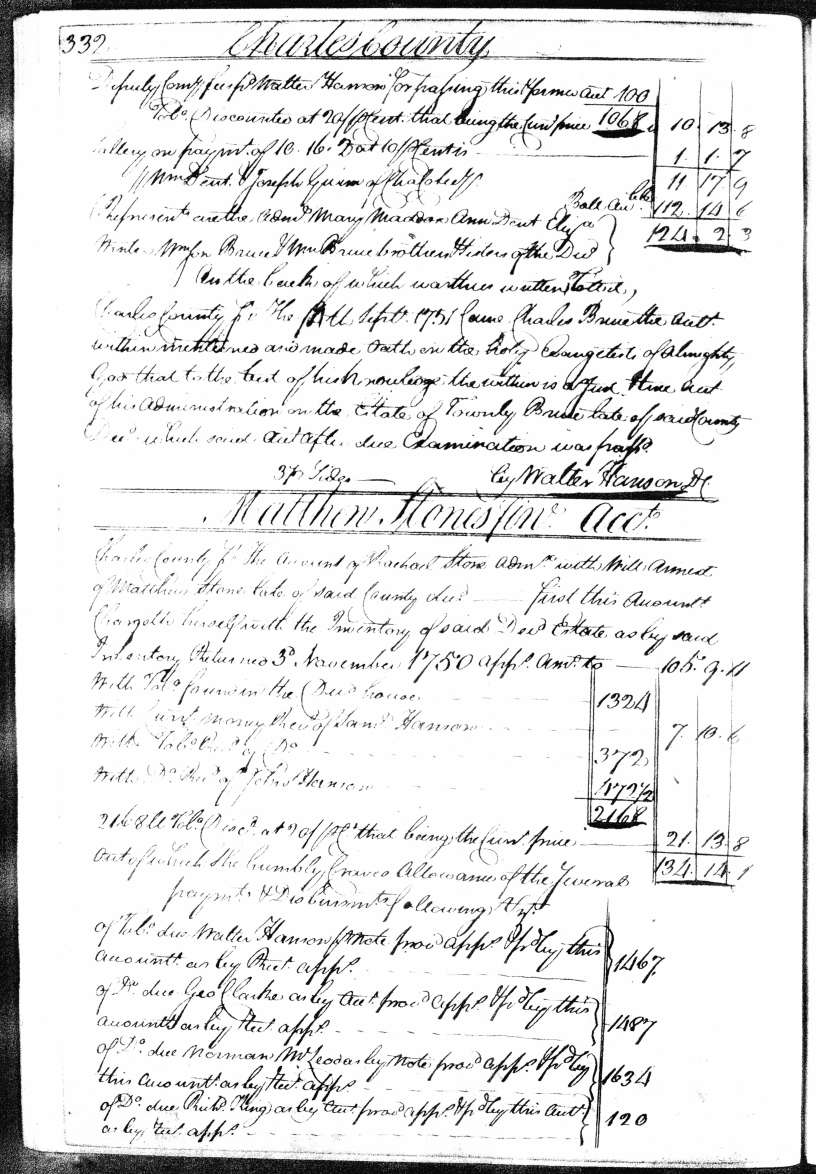 332 Charles County
Deputy Comy fee pr Walter Hanson for passing this & former acct 100
Tobo Discounted at 20/ pr Cent that being the Curt price 1068 10. 13. 8
Sallery on paymt of 10. 16. 2 at 10 pr Cent is 1. 1. 7
Wm Dent & Joseph Guinn of Chas Co 11 17 9
Represent are the Adms Mary Maddox Ann Dent Eliza Ball Due 112. 14 6
Wm Bruce brothers & Sisters of the Decd 124. 2. 3
On the back of which was thus written Viz
Charles County Ss The Sept 1751 Came Charles Bruce the Acct
within mentioned and made Oath on the holy Evangelists of Almighty
God that to the best of his knowledge the within is a Just & true acct
of his administration on the Estate of Townly Bruce late of said County
Decd which said acct after due Examination was passd
3 Sides by Walter Hanson DC
Matthew Stones Acct
Charles County Ss The Account of Rachael Stone Admx with Will Annexd
of Matthew Stone late of said County decd first this Accountt
Chargeth herself with the Inventory of said Decd Estate as by said
Inventory Returned 3d November 1750 appr amt to 105. 9. 11
With Tobo found in the Decd house 1324
With Curt money Recd of Saml Hanson 7. 10. 6
With Tobo Recd of Do 372
With Do Recd of John Hanson 472 1/2
2168
2168 lb Tobo Discd at 20/ pr Ct that being the Curt price 21. 13. 8
Out of which She humbly Craves Allowance of the Several 134. 14. 1
paymts & Disbursmts following Vizt
of Tobo due Walter Hanson pr Note provd appr & pd by this
accountt as by Rect appr 1467
of Do due Geo Clarke as by Acct provd appr & pd by this
accountt as by Rect appr 1487
of Do due Norman McLeod as by Note provd appr & pd by
this Accountt as by Rect appr 1634
of Do due Richd King as by Acct provd appr & pd by this Acct
as by Rect appr 120